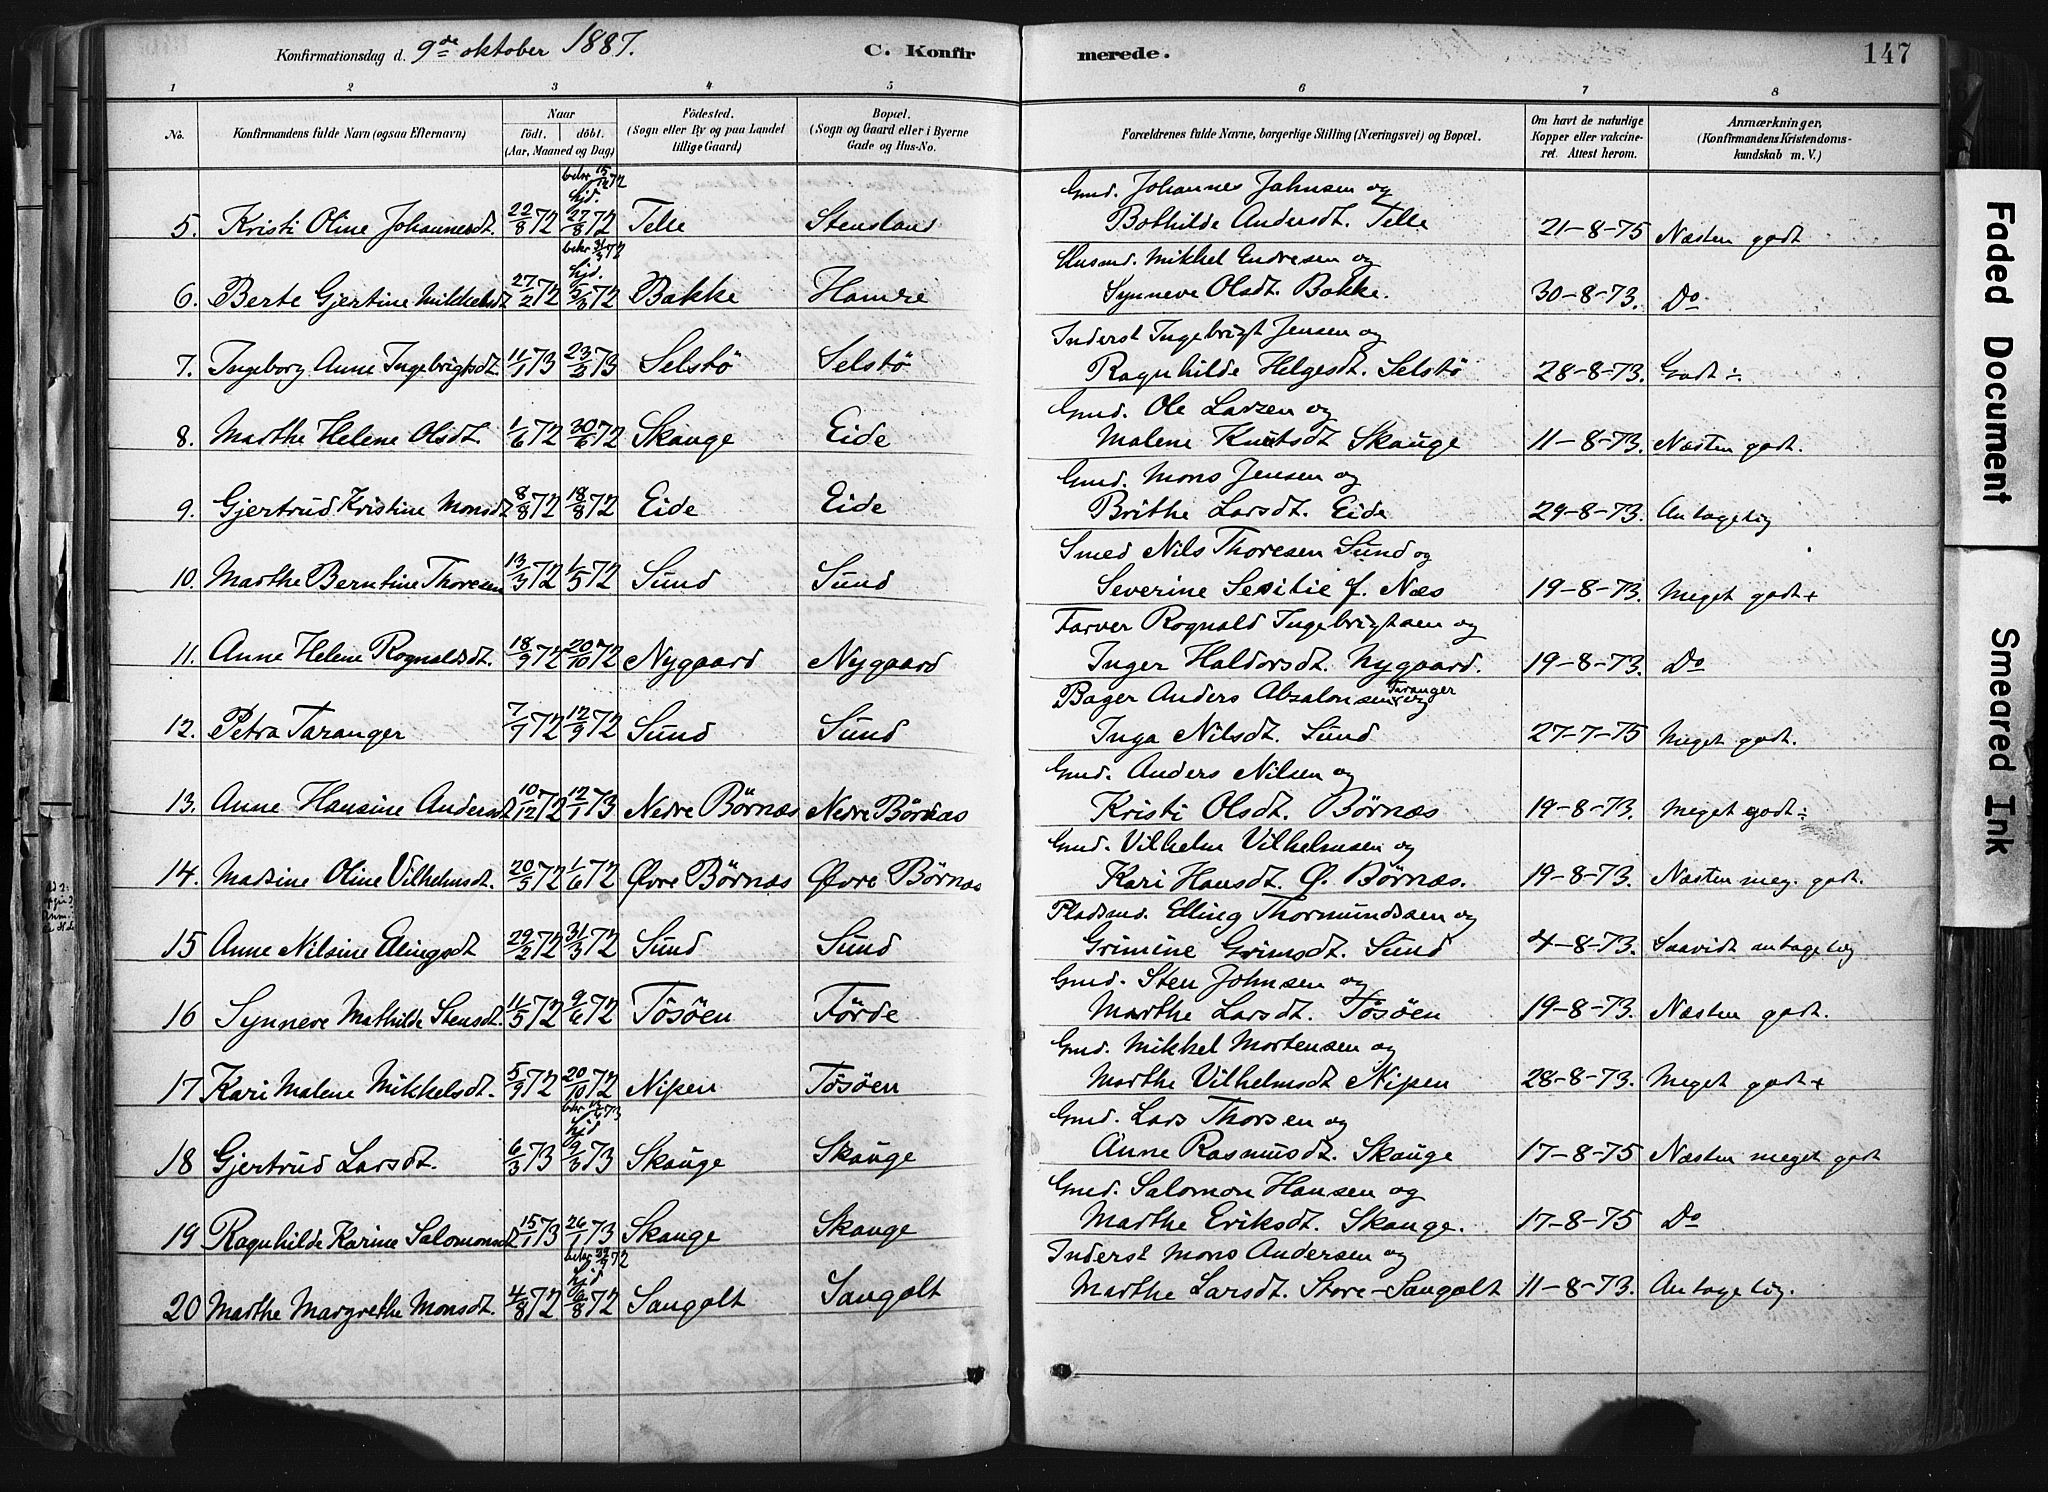 Konfirmationsdag d. 9de oktober 1887. C. Konfirmerede. 147
1 2 3 4 5 6 7 8
No. Konfirmandens fulde Navn (ogsaa Efternavn) Naar födt. döbt. (Aar, Maaned og Dag) Födested. (Sogn eller By og paa Landet tillige Gaard) Bopæl. (Sogn og Gaard eller i Byerne Gade og Hus-No. Forældrenes fulde Navne, borgerlige Stilling (Næringsvei) og Bopæl. Om havt de naturlige Kopper eller vakcineret. Attest herom. Anmærkninger, (Konfirmandens Kristendomskundskab m. V.)
bekr 15/12 72 Gmd. Johannes Jahnsen og
5. Kristi Oline Johannesdt. 22/8 72 hjd. 27/8 72 Telle Stensland Bothilde Andersdt. Telle 21-8-75 Næsten godt
bekr 31/3 72 Husmd. Mikkel Endresen og
6. Berte Gjertine Mikkelsdt 27/2 72 hjd. 5/3 72 Bakke Hamre Synneve Olsdt. Bakke. 30-8-73. Do
Inderst Ingebrigt Jensen og
7. Ingeborg Anne Ingebrigtsdt. 11/1 73 23/2 73 Selstö Selstö Ragnhilde Helgesdt. Selstö 28-8-73. Godt ÷
Gmd. Ole Larsen og
8. Marthe Helene Olsdt. 1/6 72 30/6 72 Skauge Eide Malene Knutsdt Skauge 11-8-73. Næsten godt.
Gmd. Mons Jensen og
9. Gjertrud Kristine Monsdt 8/8 72 18/8 72 Eide Eide Brithe Larsdt. Eide 29-8-73. Antagelig
Smed Nils Thoresen Sund og
10. Marthe Berntine Thoresen 13/3 72 1/5 72 Sund Sund Severine f. Næs 19-8-73. Meget godt+
Farver Rognald Ingebrigtsen og
11. Anne Helene Rognaldsdt. 18/9 72 20/10 72 Nygaard Nygaard Inger Haldorsdt. Nygaard. 19-8-73. Do
Bager Anders Absalonsen Taranger og
12. Petra Taranger 7/7 72 12/9 72 Sund Sund Inga Nilsdt. Sund 27-7-75 Meget godt.
Gmd. Anders Nilsen og
13. Anne Hansine Andersdt 10/12 72 12/1 73 Nedre Börnæs Nedre Börnæs Kristi Olsdt. Börnæs 19-8-73. Meget godt÷
Gmd. Vilhelm Vilhelmsen og
14. Marsine Oline Vilhelmsdt. 20/5 72 1/6 72 Øvre Börnæs Øvre Börnæs Kari Hansdt. Ø. Börnæs. 19-8-73. Næsten meg. godt.
Pladsmd. Elling Thormundssen og
15 Anne Nilsine Elingsdt 29/2 72 31/3 72 Sund Sund Grimine Grimsdt. Sund 4-8-73. Saavidt antagelig
Gmd. Sten Johnsen og
16 Synneve Mathilde Stensdt. 11/5 72 9/6 72 Tösöen Förde Marthe Larsdt. Tösöen 19-8-73. Næsten godt.
Gmd. Mikkel Mortensen og
17 Kari Malene Mikkelsdt. 5/9 72 20/10 72 Nipen Tösöen Marthe Vilhelmsdt Nipen 28-8-73. Meget godt+
Gmd. Lars Thorsen og
18 Gjertrud Larsdt. 6/3 73 hjd 9/3 73 Skauge Skauge Anne Rasmusdt. Skauge 17-8-75 Næsten meget godt
Gmd. Salomon Hansen og
19 Ragnhilde Karine Salomonsdt 15/1 73 26/1 73 Skauge Skauge Marthe Eriksdt. Skauge. 17-8-75 Do
Inderst Mons Andersen og
20 Marthe Margrethe Monsdt. 4/8 72 hjd Sangolt Sangolt Marthe Larsdt. Store-Sangolt 11-8-73. Antagelig.
Faded Document
Smeared Ink